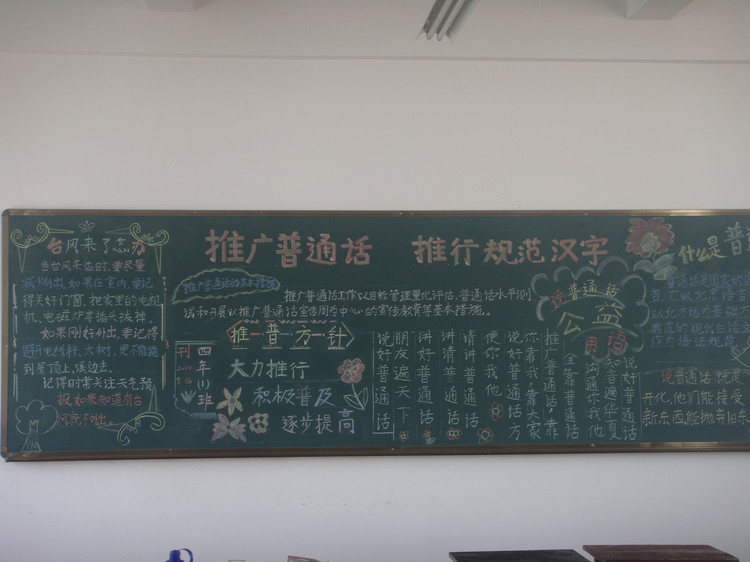 推广普通话 推行规范汉字
台风来了怎办
当台风来临时,要尽量
减少外出,如果在室内,要记
得关好门窗,把家里的电视
机、电磁炉等插头拔掉。
如果刚好外出,要记得
避开电线杆、大树,更不能站
到屋顶上、溪边去。
记得时常关注天气预
报,如果知道有台
推广普通话的基本措施
推广普通话工作以目标管理量化评估,普通话水平测
试和开展以推广普通话宣传周为中心的宣传教育等基本措施。
推普方针
大力推行
积极普及
逐步提高
刊
四年(1)班
说普通话
公益
用语
说好普通话
知音遍华夏
沟通你我他
全靠普通话
推广普通话,靠
你靠我,靠大家
说好普通话,方
便你我他
请讲普通话
讲清普通话
讲好普通话
朋友遍天下
说好普通话
什么是普
说普通话就是
开化,他们能接受
新东西,能抛弃旧东